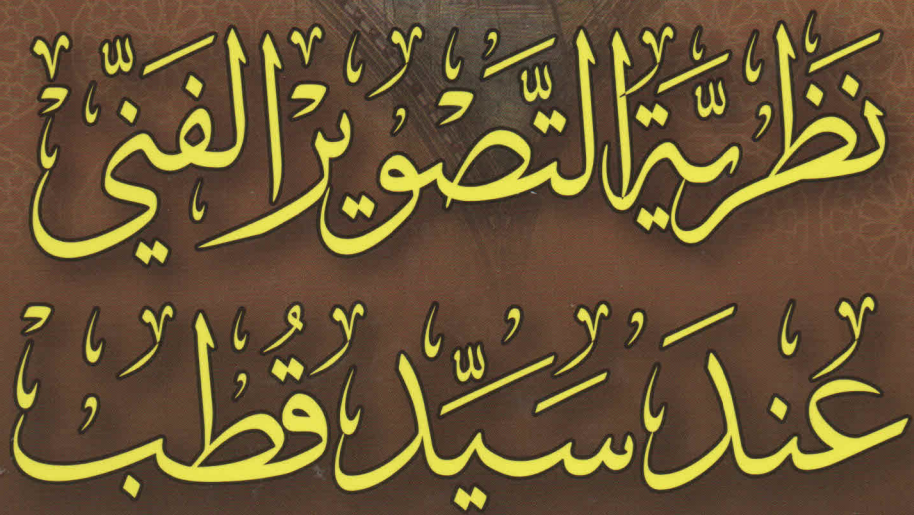 نَظَريَّةُ التَّصْويرِ الفَنّيّ
عندَ سَيّد قُطب